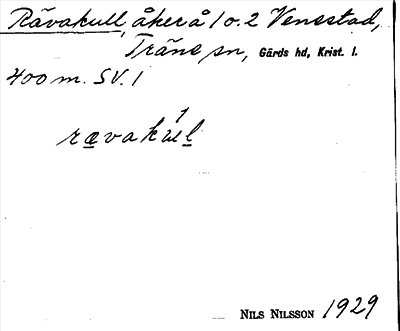 Rävakull, åker å 1 o. 2 Venestad,
Träne sn, Gärds hd, Krist. l.
400 m. SV. 1
rævakul
NILS NILSSON 1929